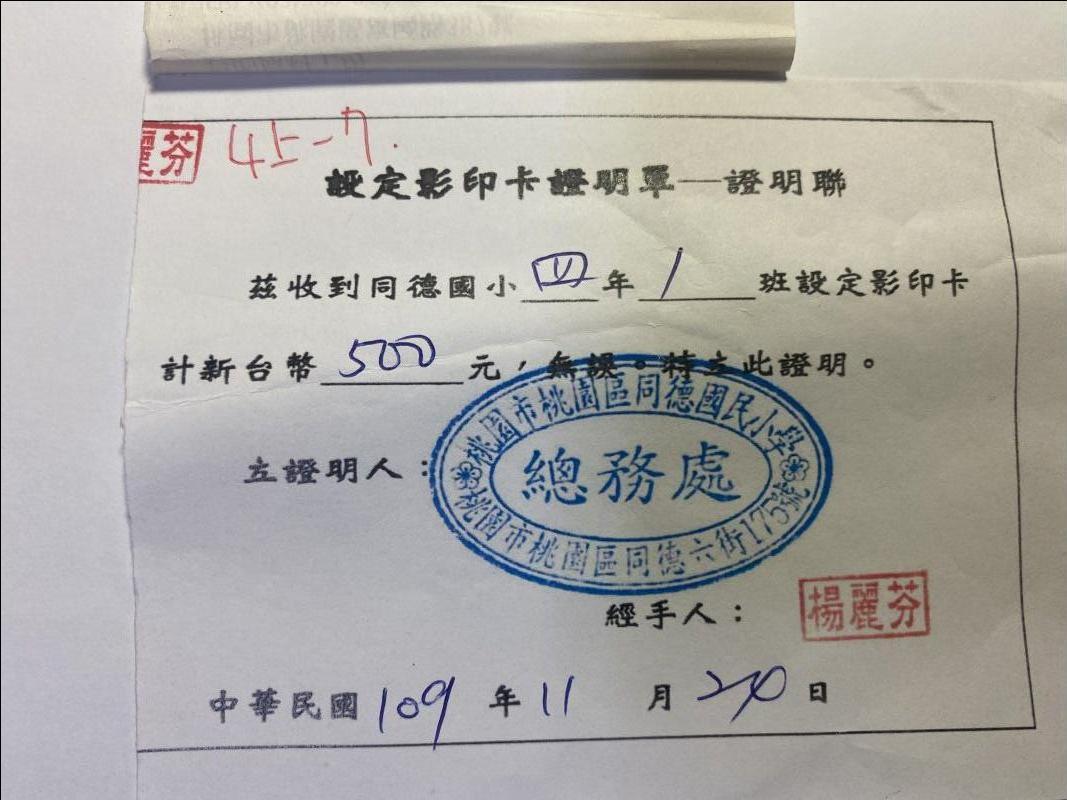 麗芬 45-7.
設定影印卡證明單—證明聯
茲收到同德國小四年1班設定影印卡
計新台幣500元，無誤。特立此證明。
立證明人：
桃園市桃園區同德國民小學
總務處
桃園市桃園區同德六街175號
經手人：楊麗芬
中華民國109年11月20日